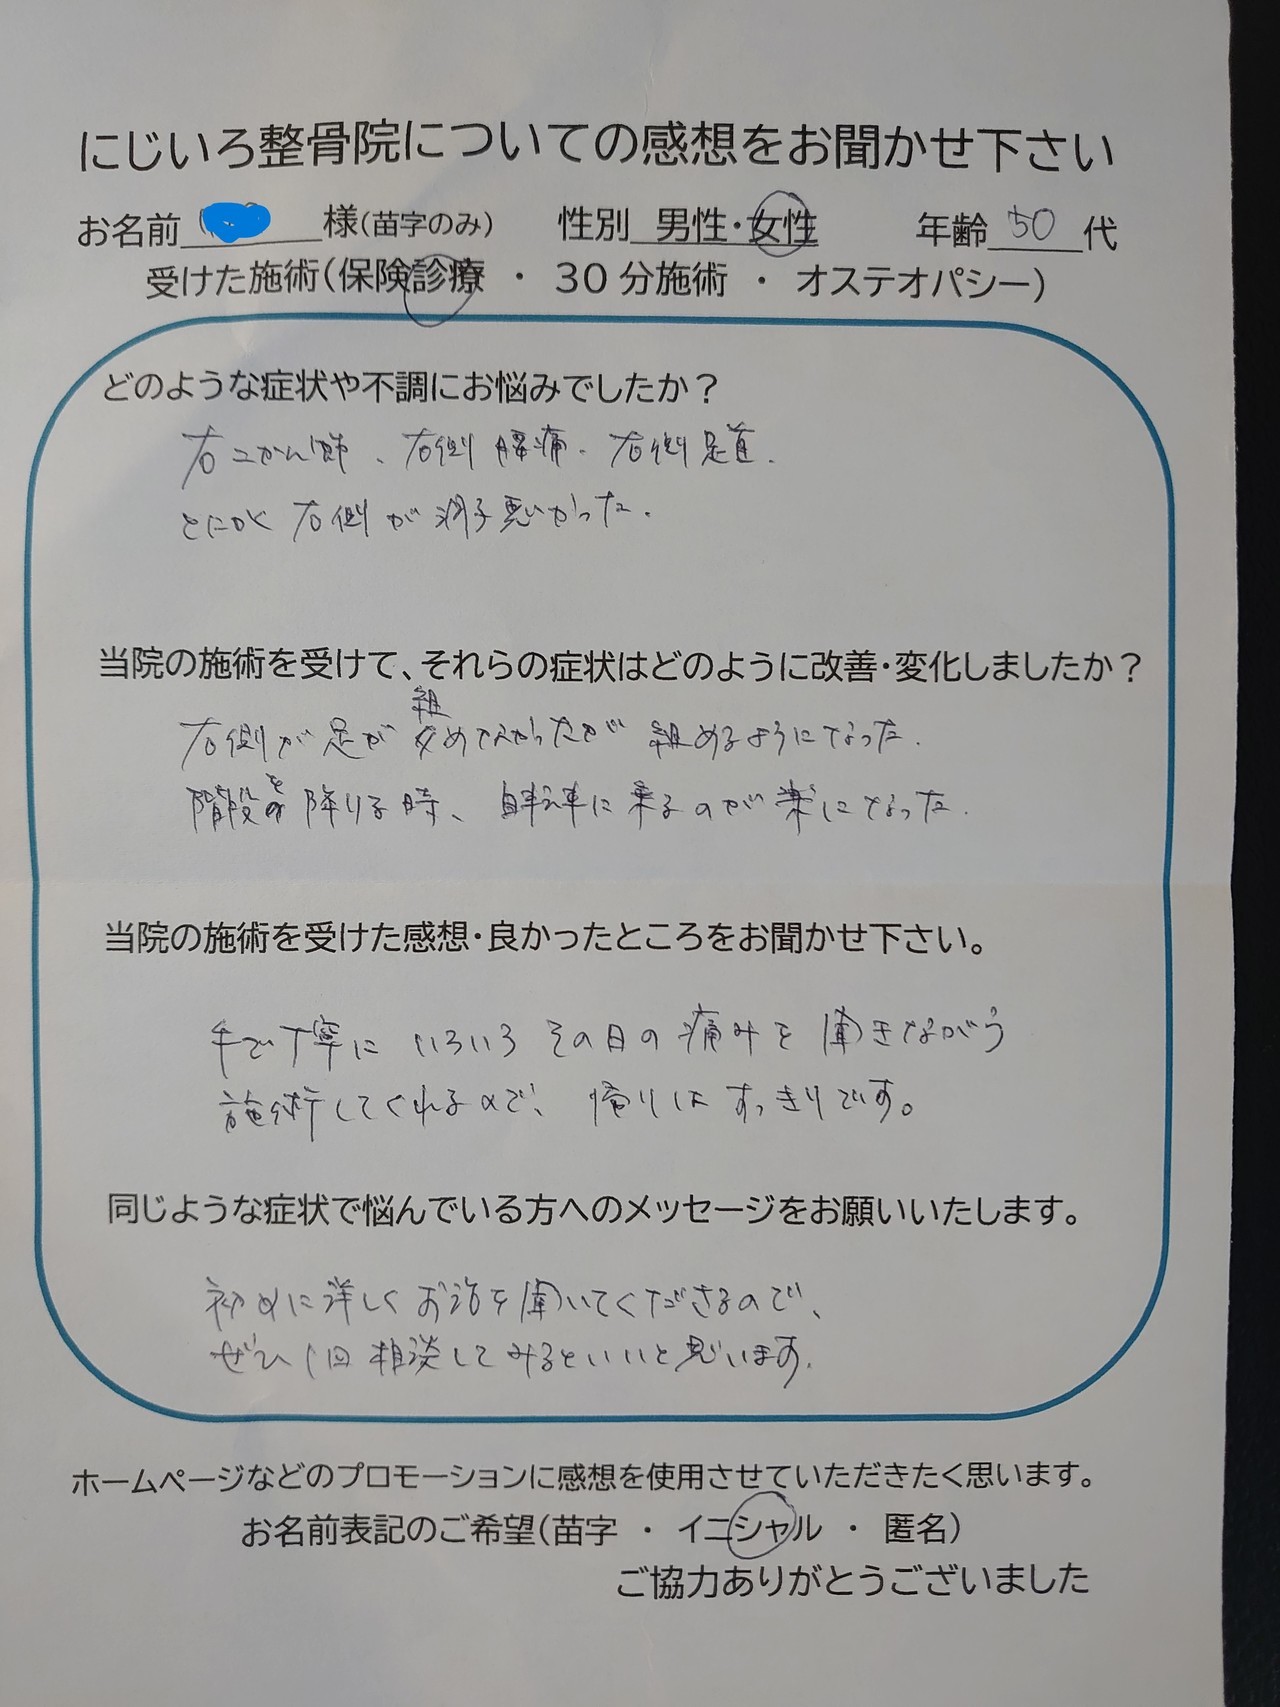 にじいろ整骨院についての感想をお聞かせ下さい
お名前 様(苗字のみ) 性別 男性・女性 年齢 50 代
受けた施術(保険診療 ・ 30分施術 ・ オステオパシー)
どのような症状や不調にお悩みでしたか?
右こかん節、右側腰痛.右側足首.
とにかく右側が調子悪いかった.
当院の施術を受けて、それらの症状はどのように改善・変化しましたか?
右側が足が組めなかったが組めるようになった.
階段を降りる時、自転車に乗るのが楽になった.
当院の施術を受けた感想・良かったところをお聞かせ下さい。
手で丁寧にいろいろその日の痛みを聞きながら
施術してくれるので、帰りはすっきりです。
同じような症状で悩んでいる方へのメッセージをお願いいたします。
初めに詳しくお話を聞いてくださるので、
ぜひ1回相談してみるといいと思います.
ホームページなどのプロモーションに感想を使用させていただきたく思います。
お名前表記のご希望(苗字 ・ イニシャル ・ 匿名)
ご協力ありがとうございました